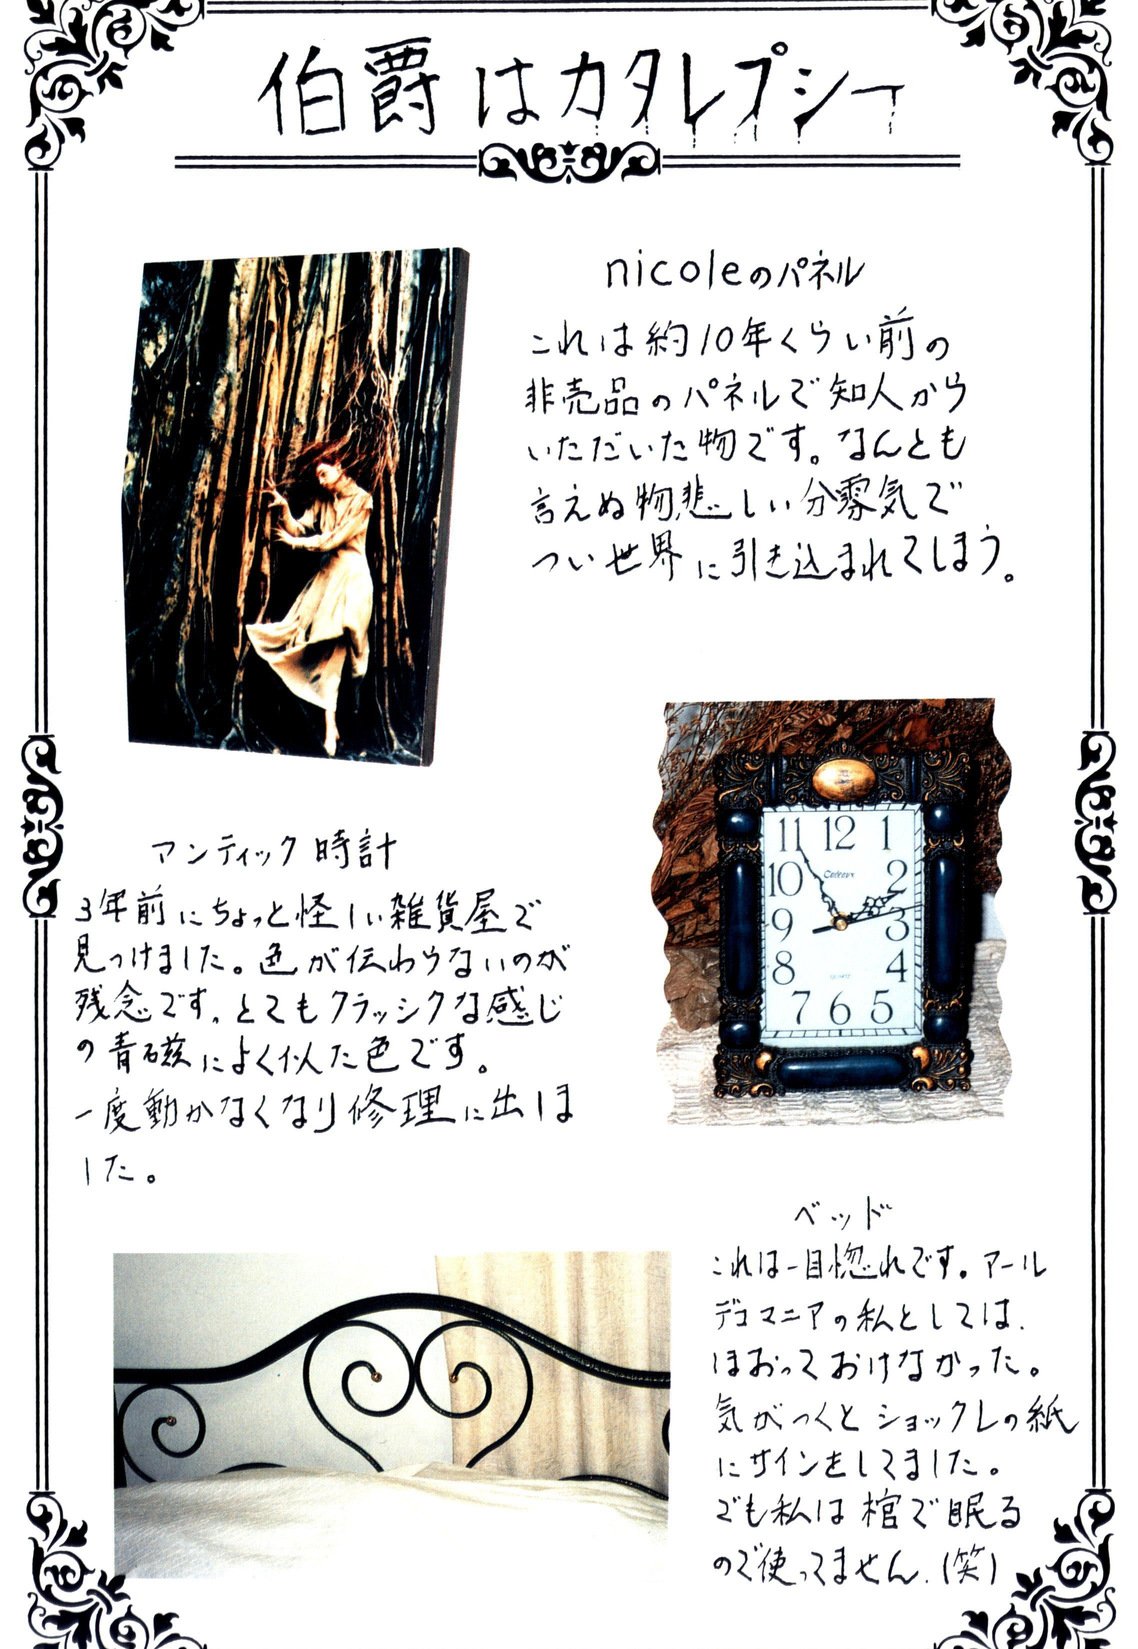 伯爵はカタレプシー
nicoleのパネル
これは約10年くらい前の
非売品のパネルで知人から
いただいた物です。なんとも
言えぬ物悲しい分雰気で
つい世界に引き込まれてしまう。
アンティック時計
3年前にちょっと怪しい雑貨屋で
見つけました。色が伝わらないのが
残念です。とてもクラッシクな感じ
の青磁によく似た色です。
一度動かなくなり修理に出しま
した。
11 12 1
10 2
9 3
8 4
7 6 5
QUARTZ
ベッド
これは一目惚れです。アール
デコマニアの私としては、
ほおっておけなかった。
気がつくとショックレの紙
にサインをしてました。
でも私は棺で眠る
ので使ってません。(笑)